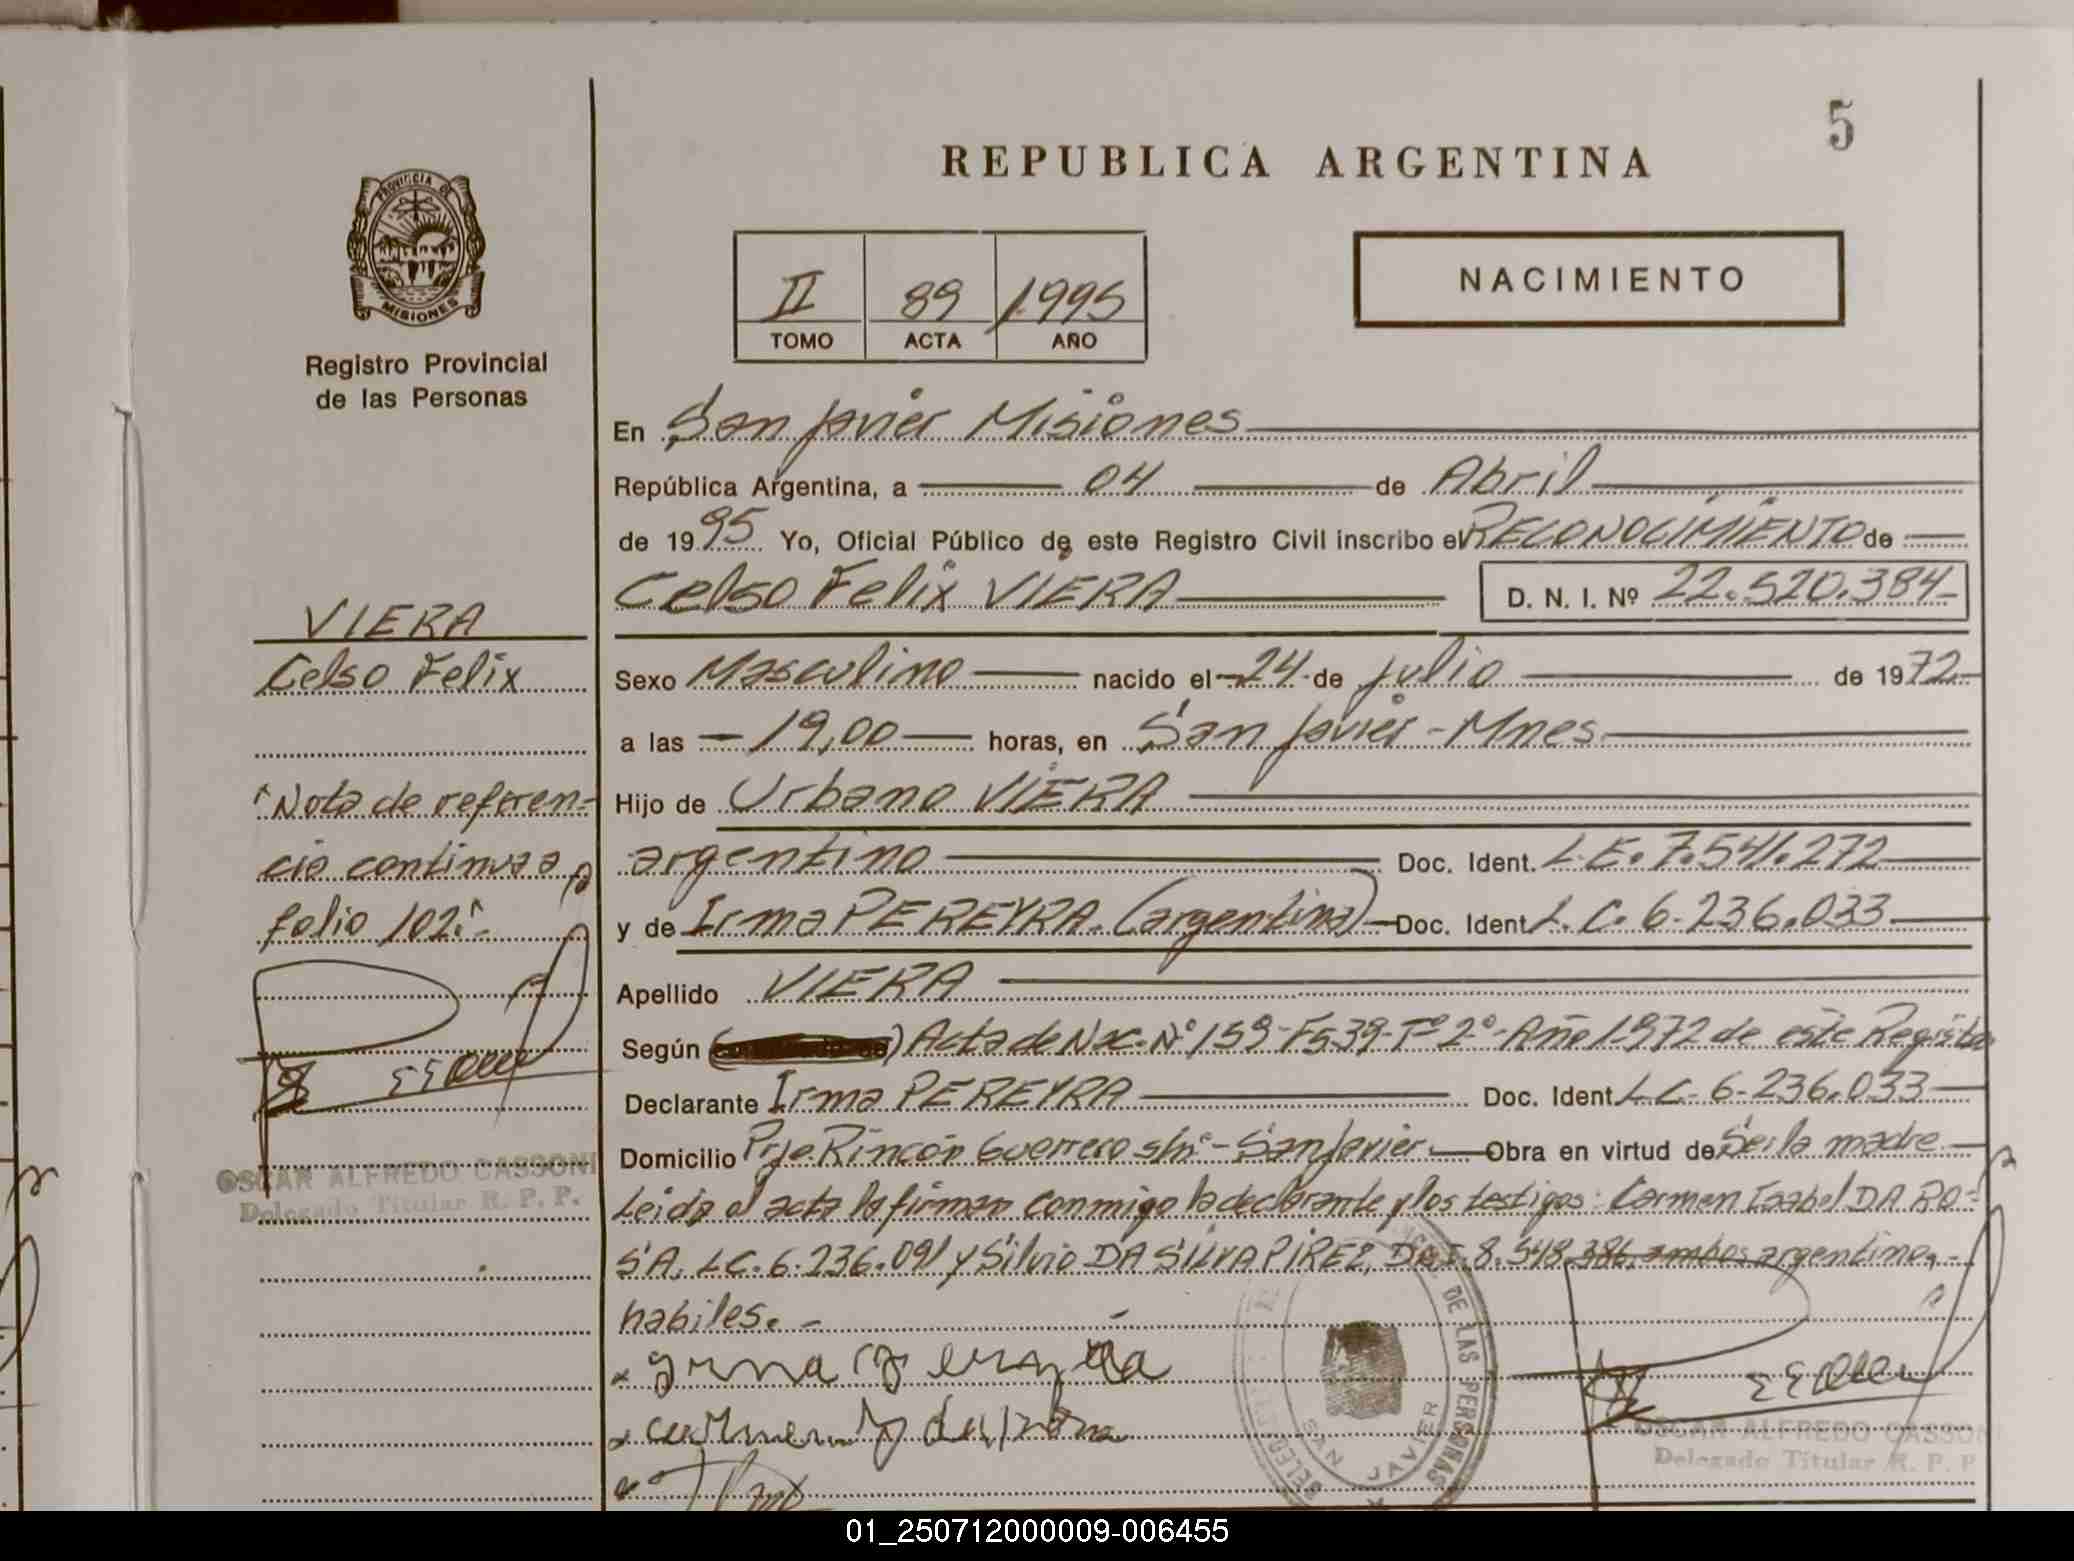 5
REPUBLICA ARGENTINA
PROVINCIA DE
MISIONES
Registro Provincial
de las Personas
II 89 1995
TOMO ACTA AÑO
NACIMIENTO
En San Javier Misiones
República Argentina, a 04 de Abril
de 1995 Yo, Oficial Público de este Registro Civil inscribo el RECONOCIMIENTO de
Celso Felix VIERA D. N. I. Nº 22.520.384
Sexo Masculino nacido el 24 de julio de 1972
a las 19,00 horas, en San Javier - Mnes
Hijo de Urbano VIERA
argentino Doc. Ident. L.E. 7.541.272
y de Irma PEREYRA. (argentina) Doc. Ident. L.C. 6.236.033
Apellido VIERA
Según Acta de Nac. Nº 159-Fº 539-Tº 2º-Año 1972 de este Registro
Declarante Irma PEREYRA Doc. Ident. LC. 6.236.033
Domicilio Pije Rincón Guerrero s/nº - San Javier Obra en virtud de Ser la madre
Leida el acta la firman conmigo la declarante y los testigos: Carmen Isabel DA RO-
SA, LC. 6.236.091 y Silvio DA SILVA PIREZ, D.N.I. 8.548.386, ambos argentinos,
habiles. -
VIERA
Celso Felix
"Nota de referen-
cia continua a
folio 102" -
OSCAR ALFREDO CASSONI
Delegado Titular R. P. P.
DE LAS PERSONAS
SAN JAVIER
OSCAR ALFREDO CASSONI
Delegado Titular R. P. P
01_250712000009-006455